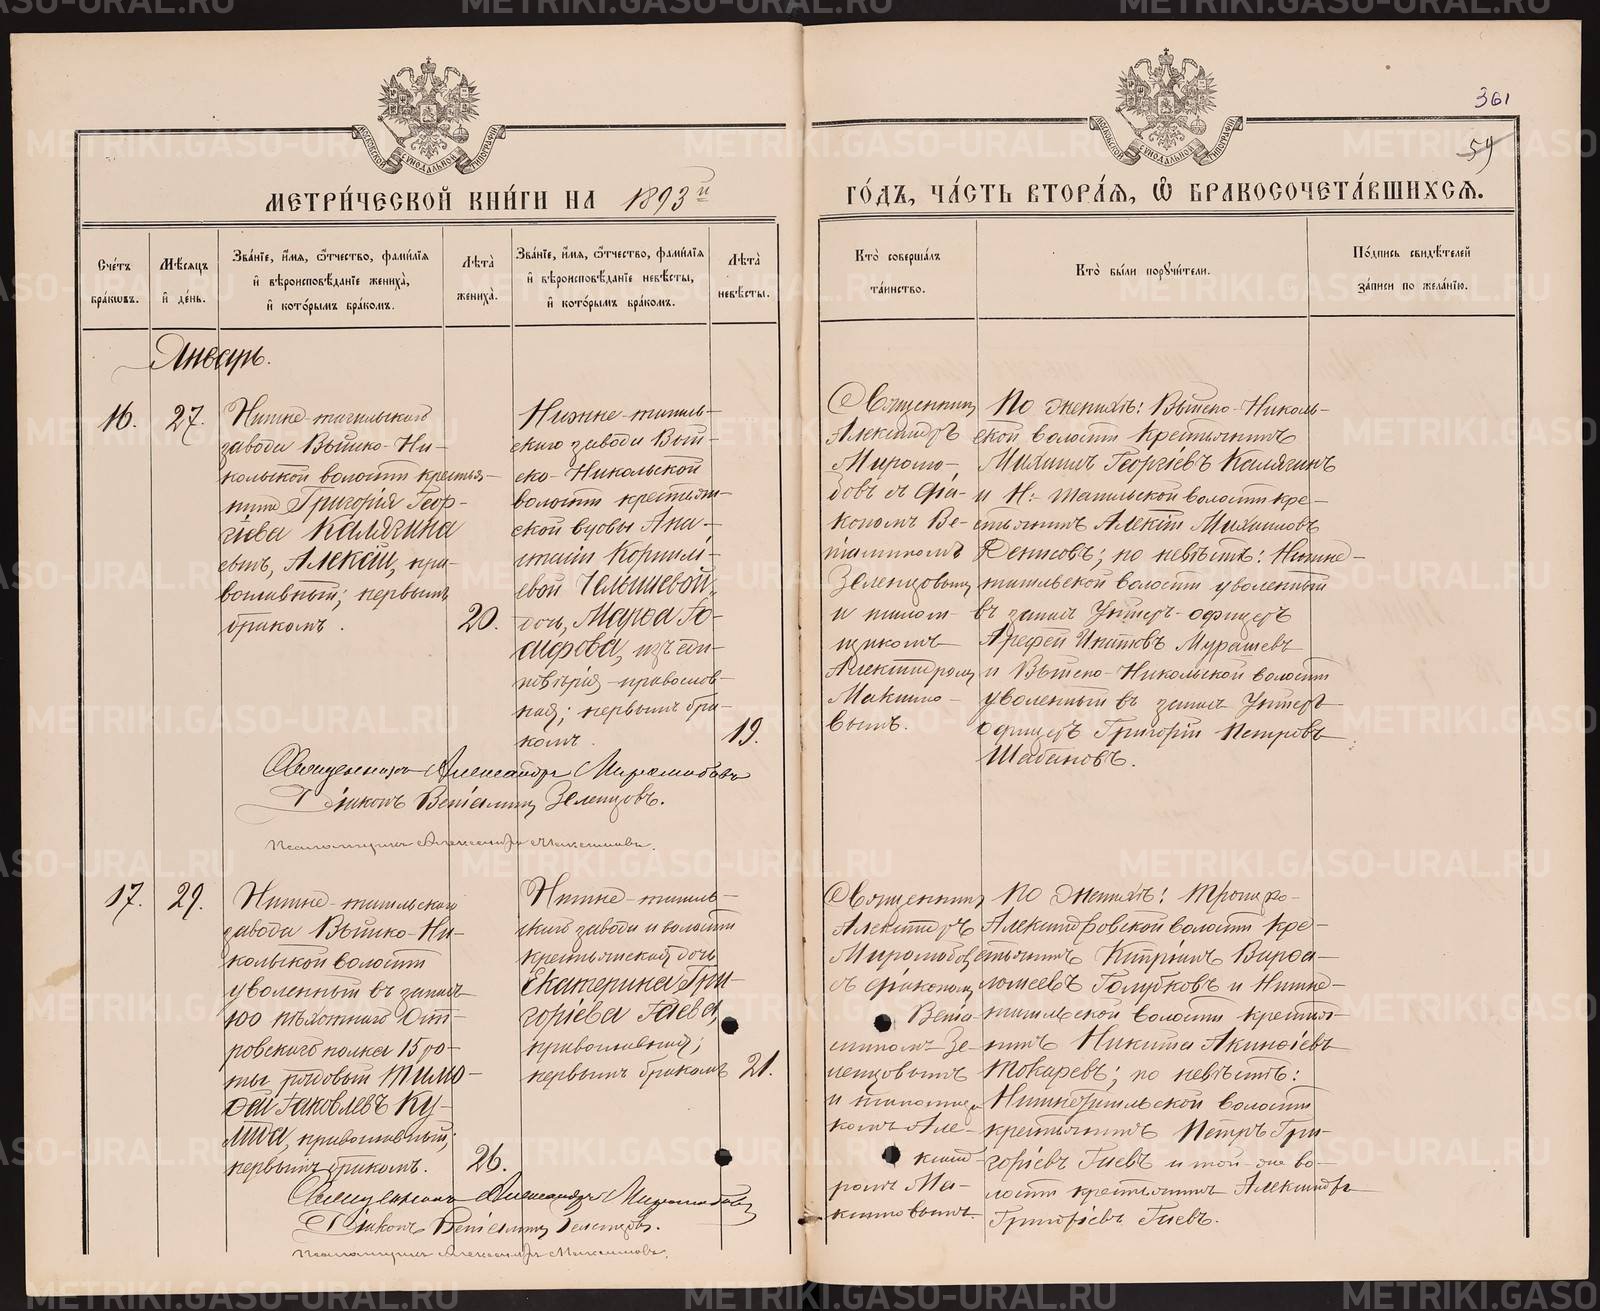 361
59
МЕТРИЧЕСКОЙ КНИГИ НА 1893й
ГОДЪ, ЧАСТЬ ВТОРАЯ, Ѡ БРАКОСОЧЕТАВШИХСЯ.
Счетъ браковъ.
Мѣсяцъ и день.
Званіе, имя, отчество, фамилія
и вѣроисповѣданіе жениха,
и которымъ бракомъ.
Лѣта жениха.
Званіе, имя, отчество, фамилія
и вѣроисповѣданіе невѣсты,
и которымъ бракомъ.
Лѣта невѣсты.
Кто совершалъ
таинство.
Кто были поручители.
Подпись свидѣтелей
записи по желанію.
Январь.
16.
27.
Нижне-тагильскаго
завода Выйско-Ни-
кольской волости крестья-
нина Григорія Геор-
гіева Калягина
сынъ, Алексій, пра-
вославный; первымъ
бракомъ.
20.
Нижне-тагиль-
скаго завода Вый-
ско-Никольской
волости крестьян-
ской вдовы Ана-
Корнилі-
евой
дочь, Мавра
изъ еди-
новѣрія православ-
ная; первымъ бра-
комъ.
19.
Священникъ
Александръ
Миролю-
бовъ съ діа-
кономъ Ве-
ніаминомъ
Зеленцовымъ
и псалом-
щикомъ
Александромъ
Максимо-
вымъ.
По женихѣ: Выйско-Николь-
ской волости крестьянинъ
Михаилъ Георгіевъ Калягинъ
и Н.-Тагильской волости кре-
стьянинъ Алексій Михаиловъ
Денисовъ; по невѣстѣ: Нижне-
тагильской волости уволенный
въ запасъ Унтеръ-офицеръ
Арефій Игнатовъ Мурашевъ
и Выйско-Никольской волости
уволенный въ запасъ Унтеръ
офицеръ Григорій Петровъ
Шабановъ.
Священникъ Александръ Миролюбовъ
Діаконъ Веніаминъ Зеленцовъ.
Псаломщикъ Александръ Максимовъ.
17.
29.
Нижне-тагильскаго
завода Выйско-Ни-
кольской волости
уволенный въ запасъ
100 пѣхотнаго Ост-
ровскаго полка 15 ро-
ты рядовый Тимо-
фей Іаковлевъ Ку-
православный;
первымъ бракомъ.
26.
Нижне-тагиль-
скаго завода и волости
крестьянская дочь
Екатерина Гри-
горіева Гаева,
православная;
первымъ бракомъ
21.
Священникъ
Александръ
Миролюбовъ
съ діакономъ
Веніа-
миномъ Зе-
ленцовымъ
и псаломщи-
комъ Але-
ксанд-
ромъ Ма-
ксимовымъ.
По женихѣ: Троицко-
Александровской волости кре-
стьянинъ Кипріанъ Варѳо-
ломеевъ Голубковъ и Нижне-
тагильской волости крестья-
нинъ Никита Акиноіевъ
Токаревъ; по невѣстѣ:
Нижнетагильской волости
крестьянинъ Петръ Гри-
горіевъ Гаевъ и той-же во-
лости крестьянинъ Александръ
Григоріевъ Гаевъ.
Священникъ Александръ Миролюбовъ
Діаконъ Веніаминъ Зеленцовъ.
Псаломщикъ Александръ Максимовъ.
METRIKI.GASO-URAL.RU